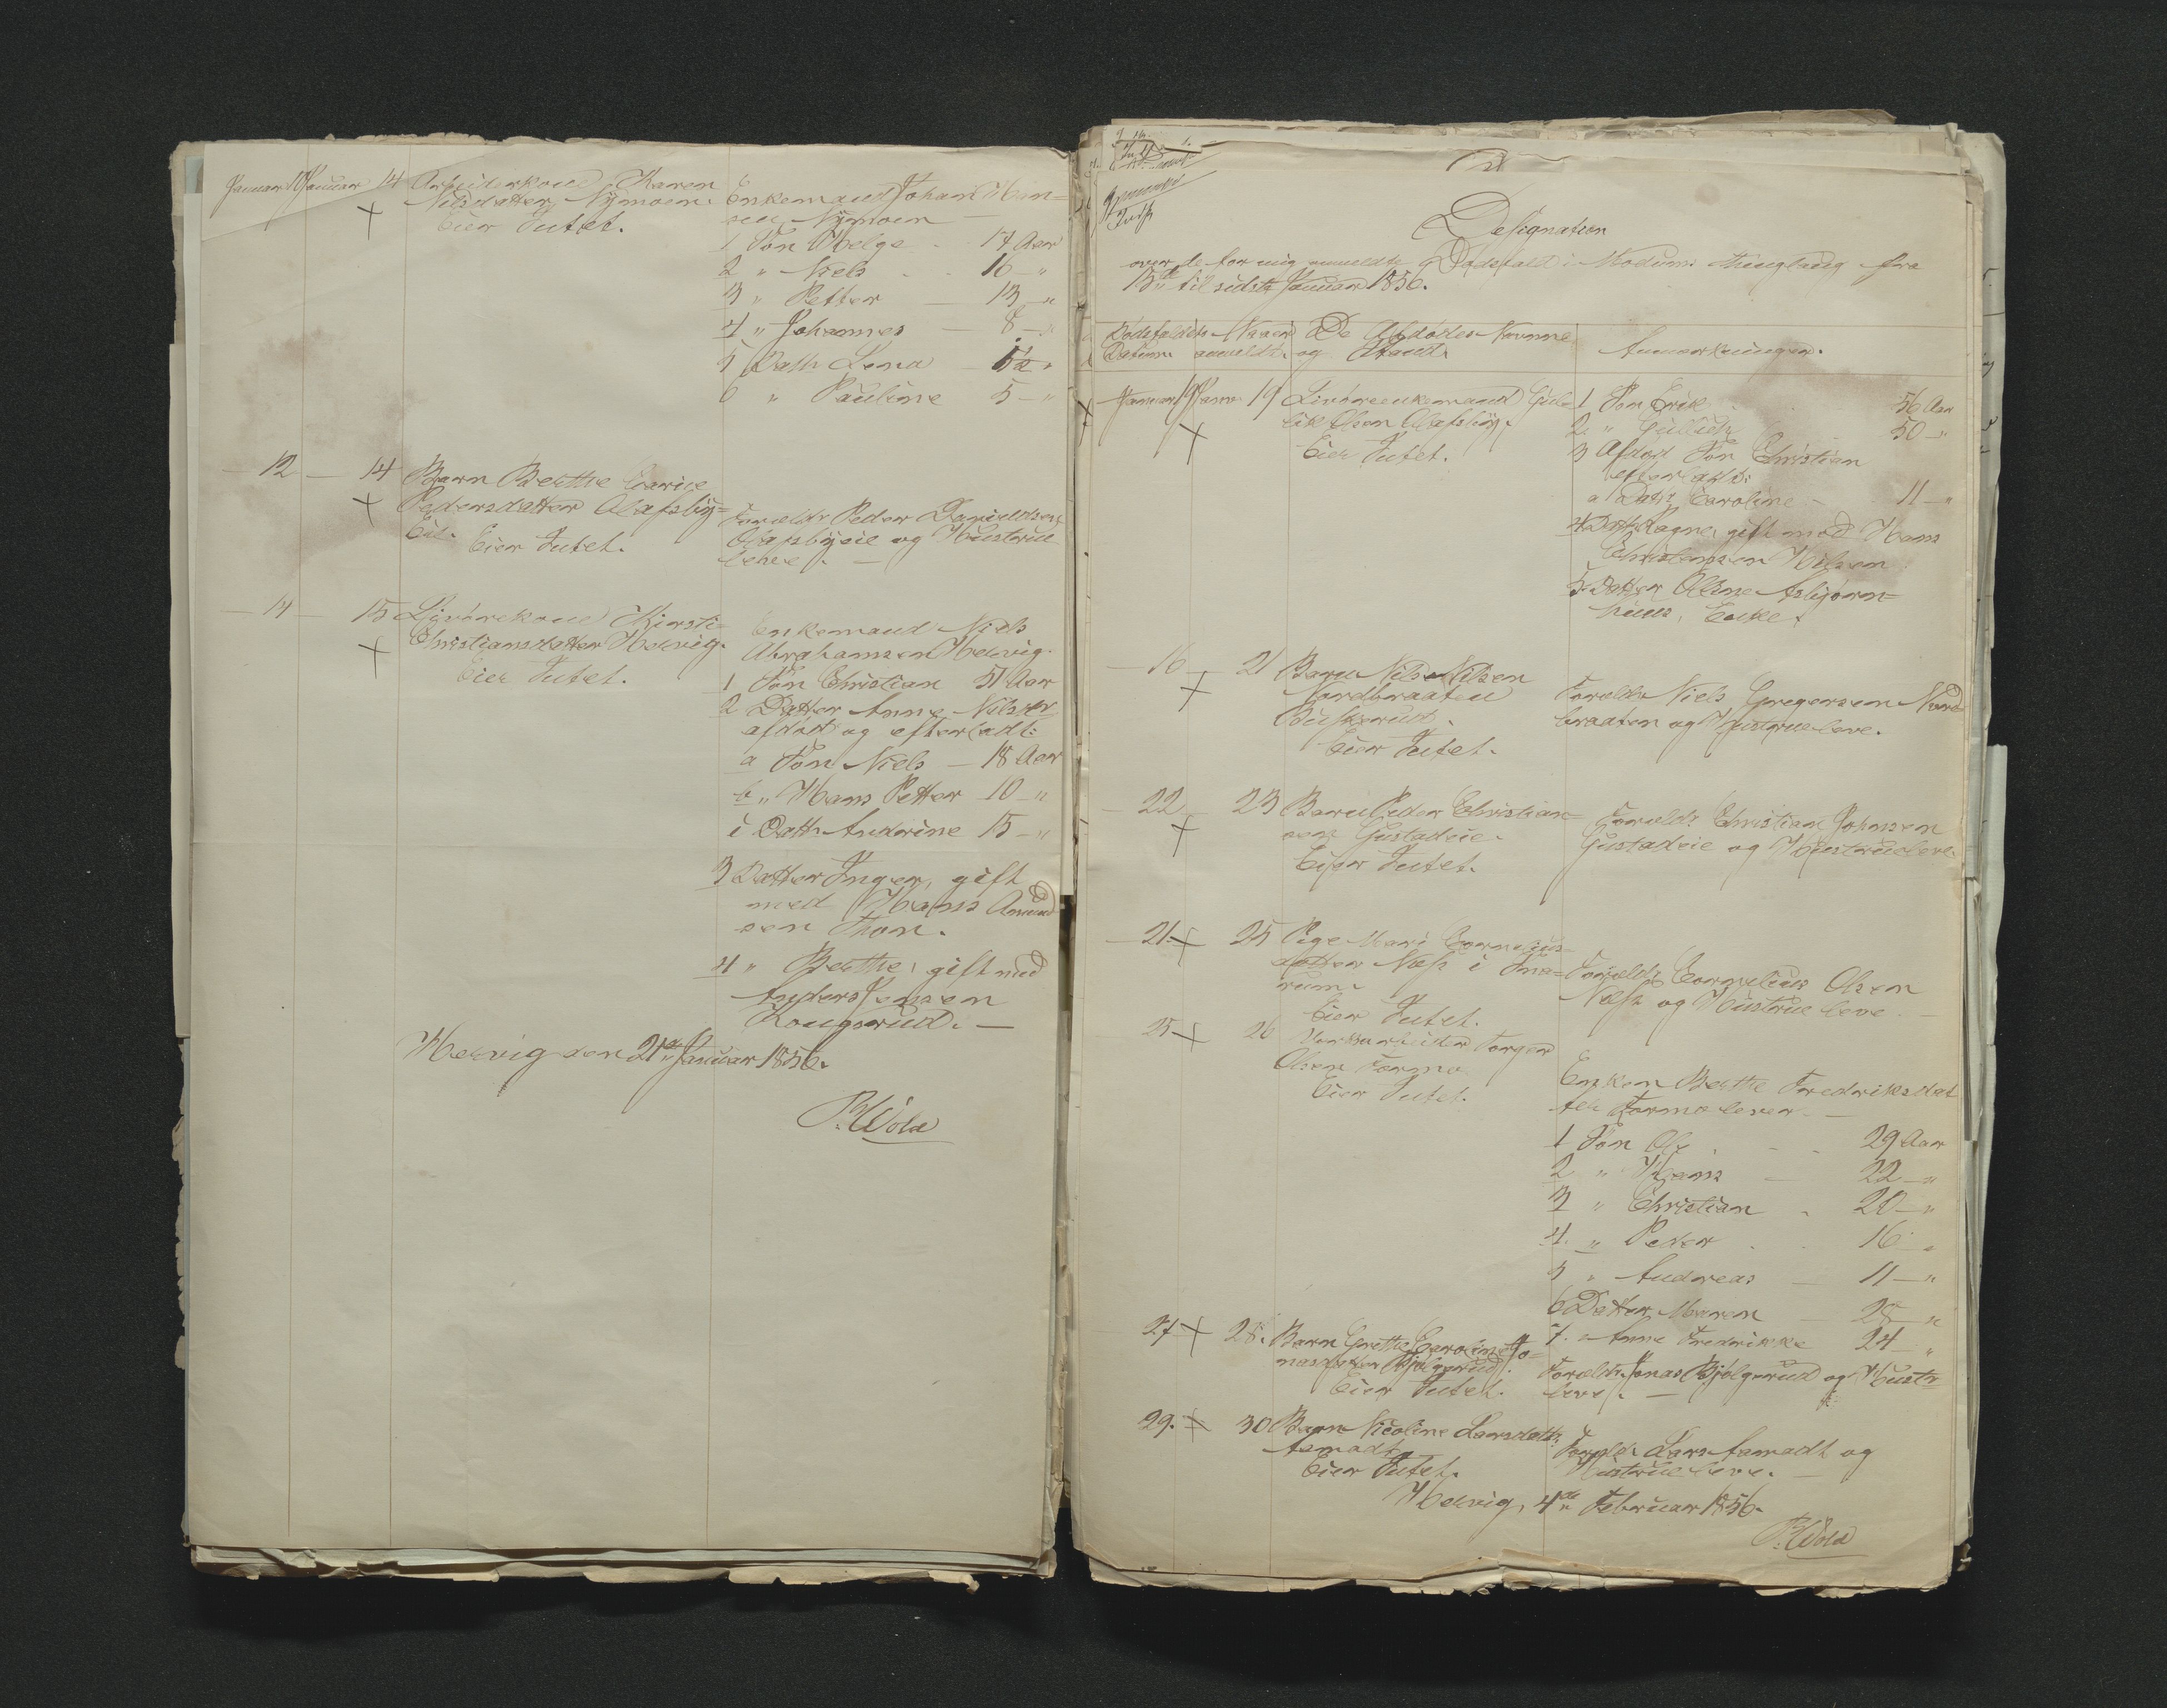 Januar 10 Januar 14 Arbeiderkone Karen
Nilsdatter Nymoen.
Eier Intet.
Enkemand Johan Han=
sen Nymoen —
1 Søn Helge - 17 Aar
2 " Niels - 16 "
3 " Petter — 13 "
4 " Johannes — 8 — "
5 Datt. Lena — "
6 " Pauline 5 — "
— 12 — 14 Barn Berthe Carine
Pedersdatter Olafsby=
Eie.
Eier Intet.
Forældr. Peder Danieldsen
Olafsbyeie og Hustrue
leve. —
— 14 — 15 Livørekone Kirsti
Christiansdatter Hedvig.
Eier Intet.
Enkemand Niels
Abrahamsen Hedvig.
1 Søn Christian 51 Aar
2 Datter Anne Nilsdtr
afdød og efterladt:
a Søn Niels — 18 Aar
b " Hans Petter 10 — "
c Datt. Andrine 15 — "
3 Datter Inger, gift
med Hans Amund
sen Thon.
4 " Berthe, gift med
Anders Jensen
Kongsrud. —
Hedvig den 21de Januar 1856.
P. Wold
Designation
over de for mig anmeldte Dødsfald i Modums Thinglaug fra
15de til sidste Januar 1856.
Dødsfaldets Datum. Naar anmeldt. De Afdødes Navnne og Stand. Anmærkninger.
Januar 19 Janr. 19 Livøreenkemand Gul=
lik Olsen Olafsby.
Eier Intet.
1 Søn Erik 56 Aar
2. " Gullik 50 — "
3 Afdød Søn Christian
efterladt:
a Datt. Caroline — 11 — "
4 Datt. Ragne, gift med Hans
Christensen
5 Datter Oline Asbjørn=
, Enke.
— 16 — 21 Barn Nils Nilsen
Nordbraaten
Buskerud.
Eier Intet.
Forældr. Niels Gregersen Nord
braaten og Hustrue leve.
— 22 — 23 Barn Peder Christian=
sen Gustadeie.
Eier Intet.
Forældr. Christian Johnsen
Gustadeie og Hustrue leve
— 21. 25 Pige Mari Cornelius=
datter Næss i Sna=
rum.
Eier Intet.
Forældr. Cornelius Olsen
Næss og Hustrue leve. —
25 26 Værksarbeider Torger
Olsen Formo
Eier Intet.
Enken Berthe Fredriksdat
ter Formo lever. —
1 Søn Ole - - 29 Aar
2 " Hans — 22 — "
3 " Christian - 20 — "
4. " Peder - 16 - "
5 " Andreas — 11 — "
6 Datter Maren 28 — "
7. " Anne Fredrikke 24 — "
27 28. Barn Grethe Caroline Jo=
nasdatter Bjølgerud.
Eier Intet.
Forældr. Jonas Bjølgerud og Hustr
leve. —
29. 30 Barn Nicoline Larsdattr.
Aamodt
Eier Intet.
Forældr. Lars Aamodt og
Hustrue leve. —
Hedvig, 4de Februar 1856.
P. Wold